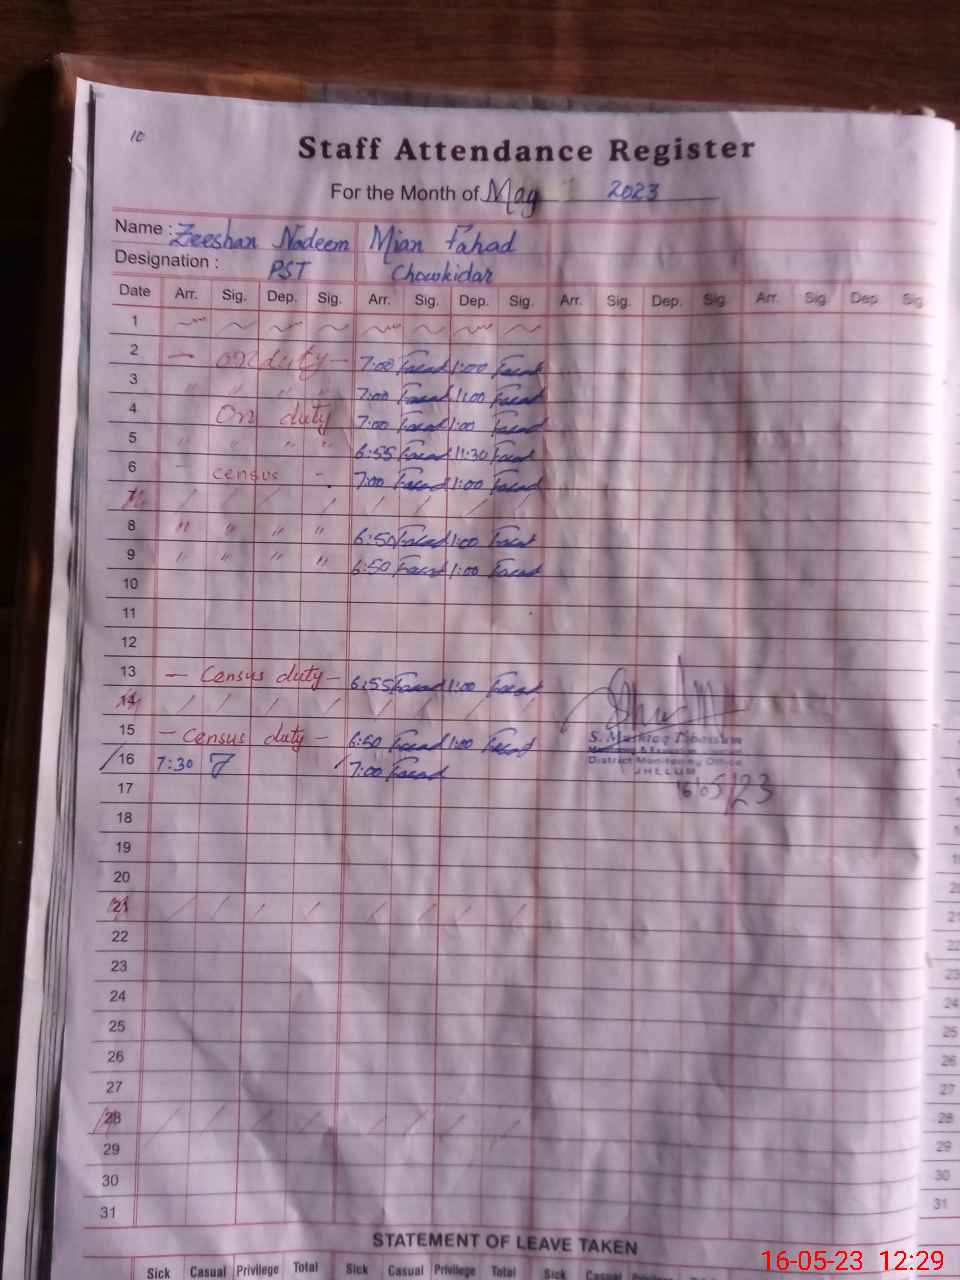 10
Staff Attendance Register
For the Month of May 2023
Name : Zeeshan Nadeem Mian Fahad
Designation : PST Chowkidar
Date Arr. Sig. Dep. Sig. Arr. Sig. Dep. Sig. Arr. Sig. Dep. Sig. Arr. Sig. Dep. Sig.
1
2 — on duty — 7:00 Fahad 1:00 Fahad
3 " " " " 7:00 Fahad 1:00 Fahad
4 On duty 7:00 Fahad 1:00 Fahad
5 " " " " 6:55 Fahad 11:30 Fahad
6 - census - 7:00 Fahad 1:00 Fahad
7
8 " " " " 6:50 Fahad 1:00 Fahad
9 " " " " 6:50 Fahad 1:00 Fahad
10
11
12
13 — Census duty — 6:55 Fahad 1:00 Fahad
14
15 — Census duty — 6:50 Fahad 1:00 Fahad
S. Mushtaq Tabassum
Monitoring & Evaluation
District Monitoring Office
JHELUM
16/05/23
16 7:30 7:00 Fahad
17
18
19
20
21
22
23
24
25
26
27
28
29
30
31
STATEMENT OF LEAVE TAKEN
Sick Casual Privilege Total Sick Casual Privilege Total Sick Casual Privilege Total
16-05-23 12:29